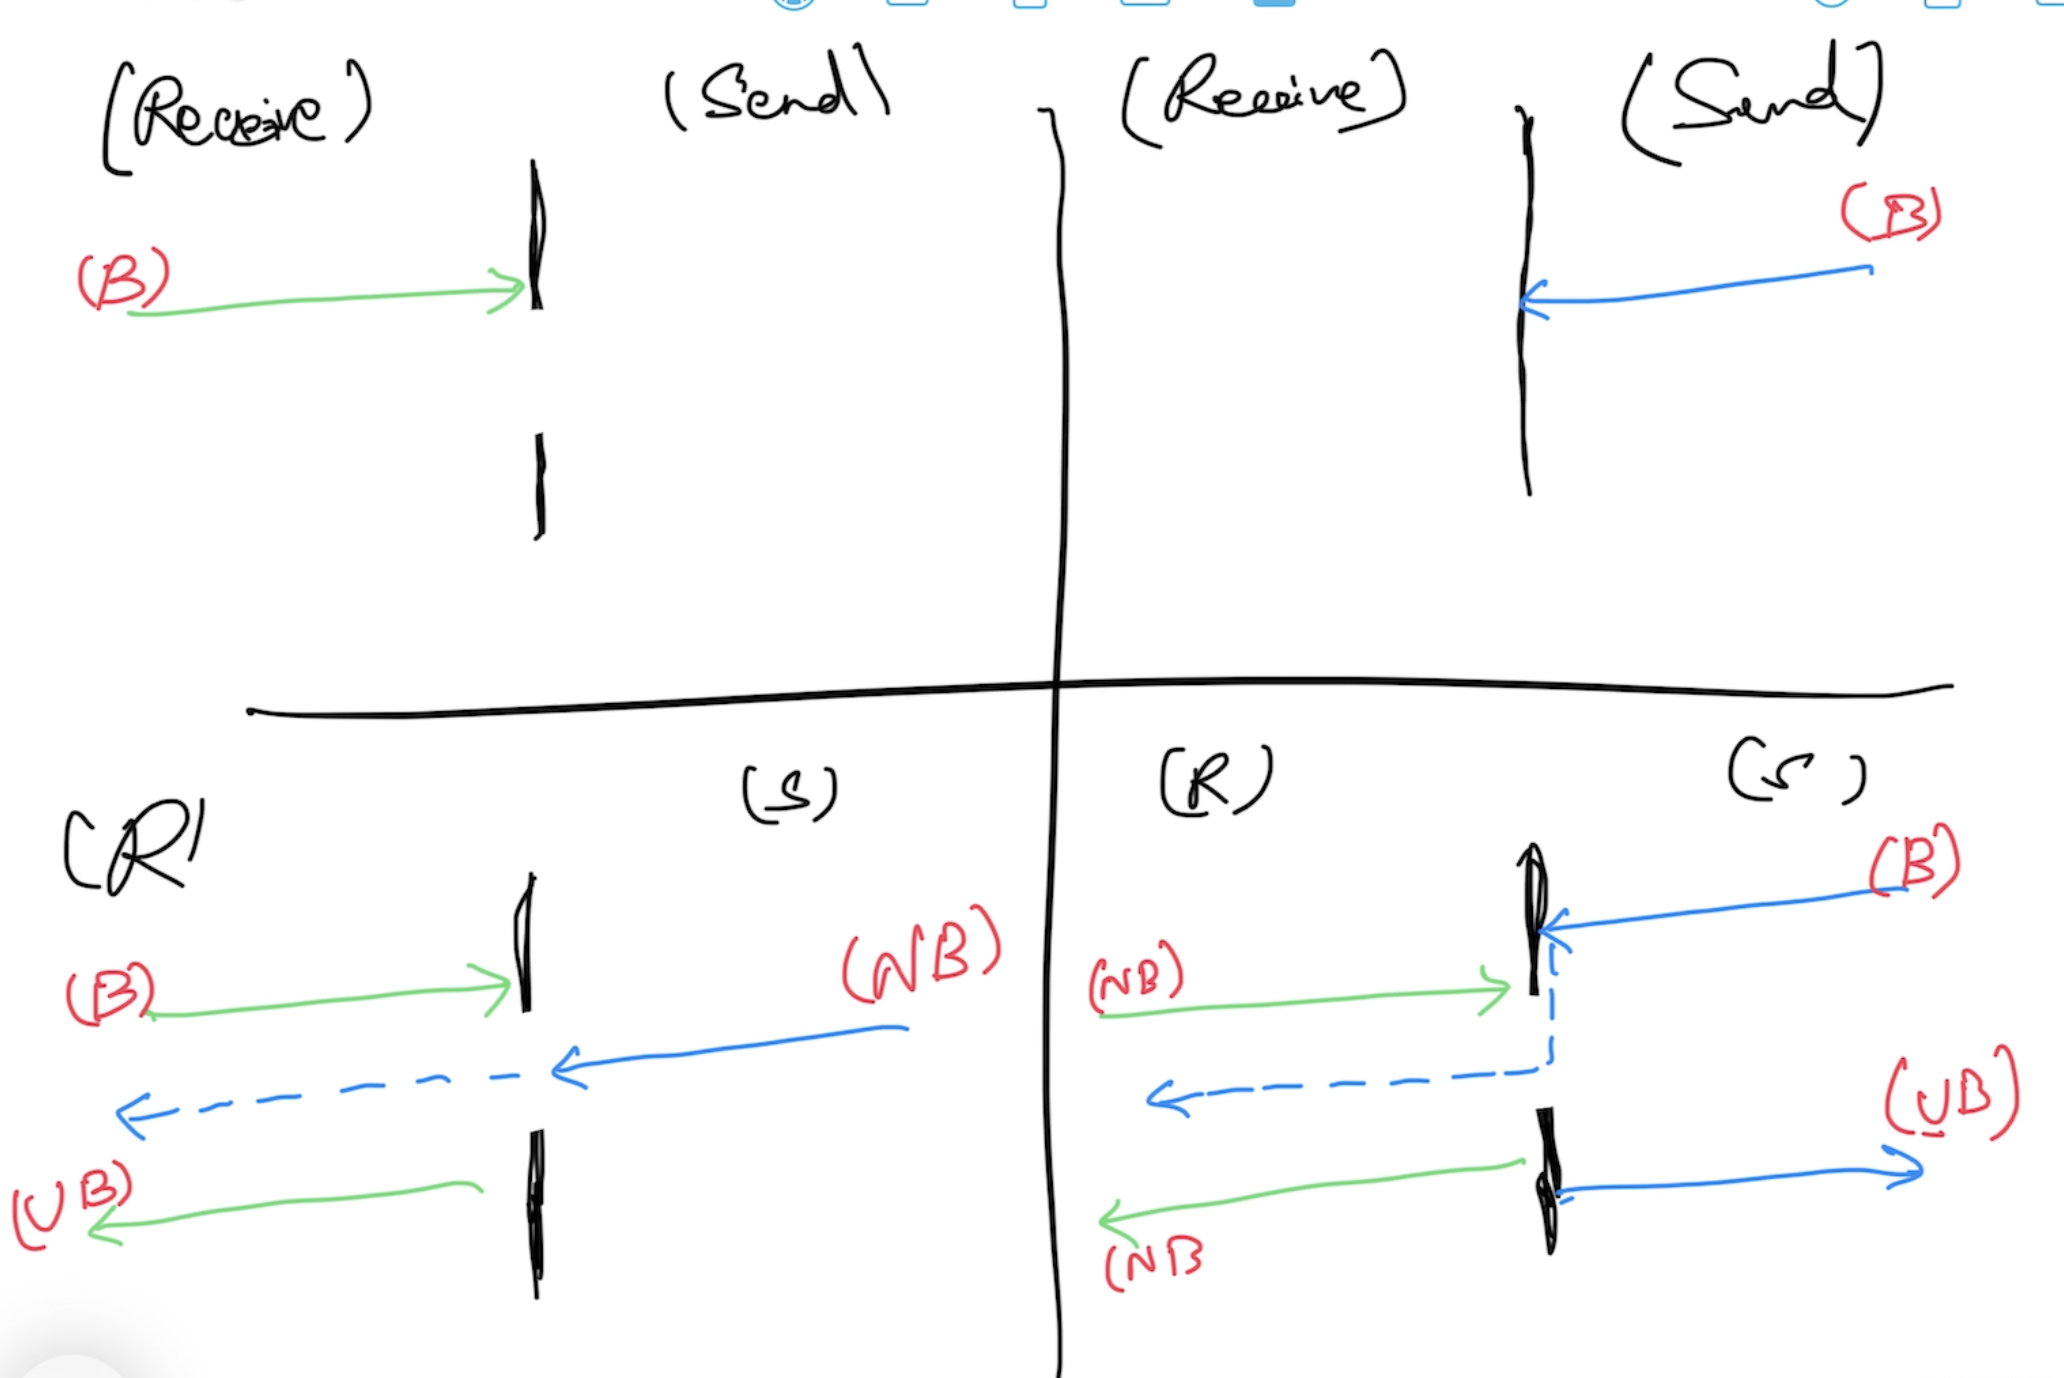 (Receive) (Send) (Receive) (Send)
(B) (B)
(R) (S) (R) (S)
(B) (NB) (NB) (B)
(UB) (UB)
(NB